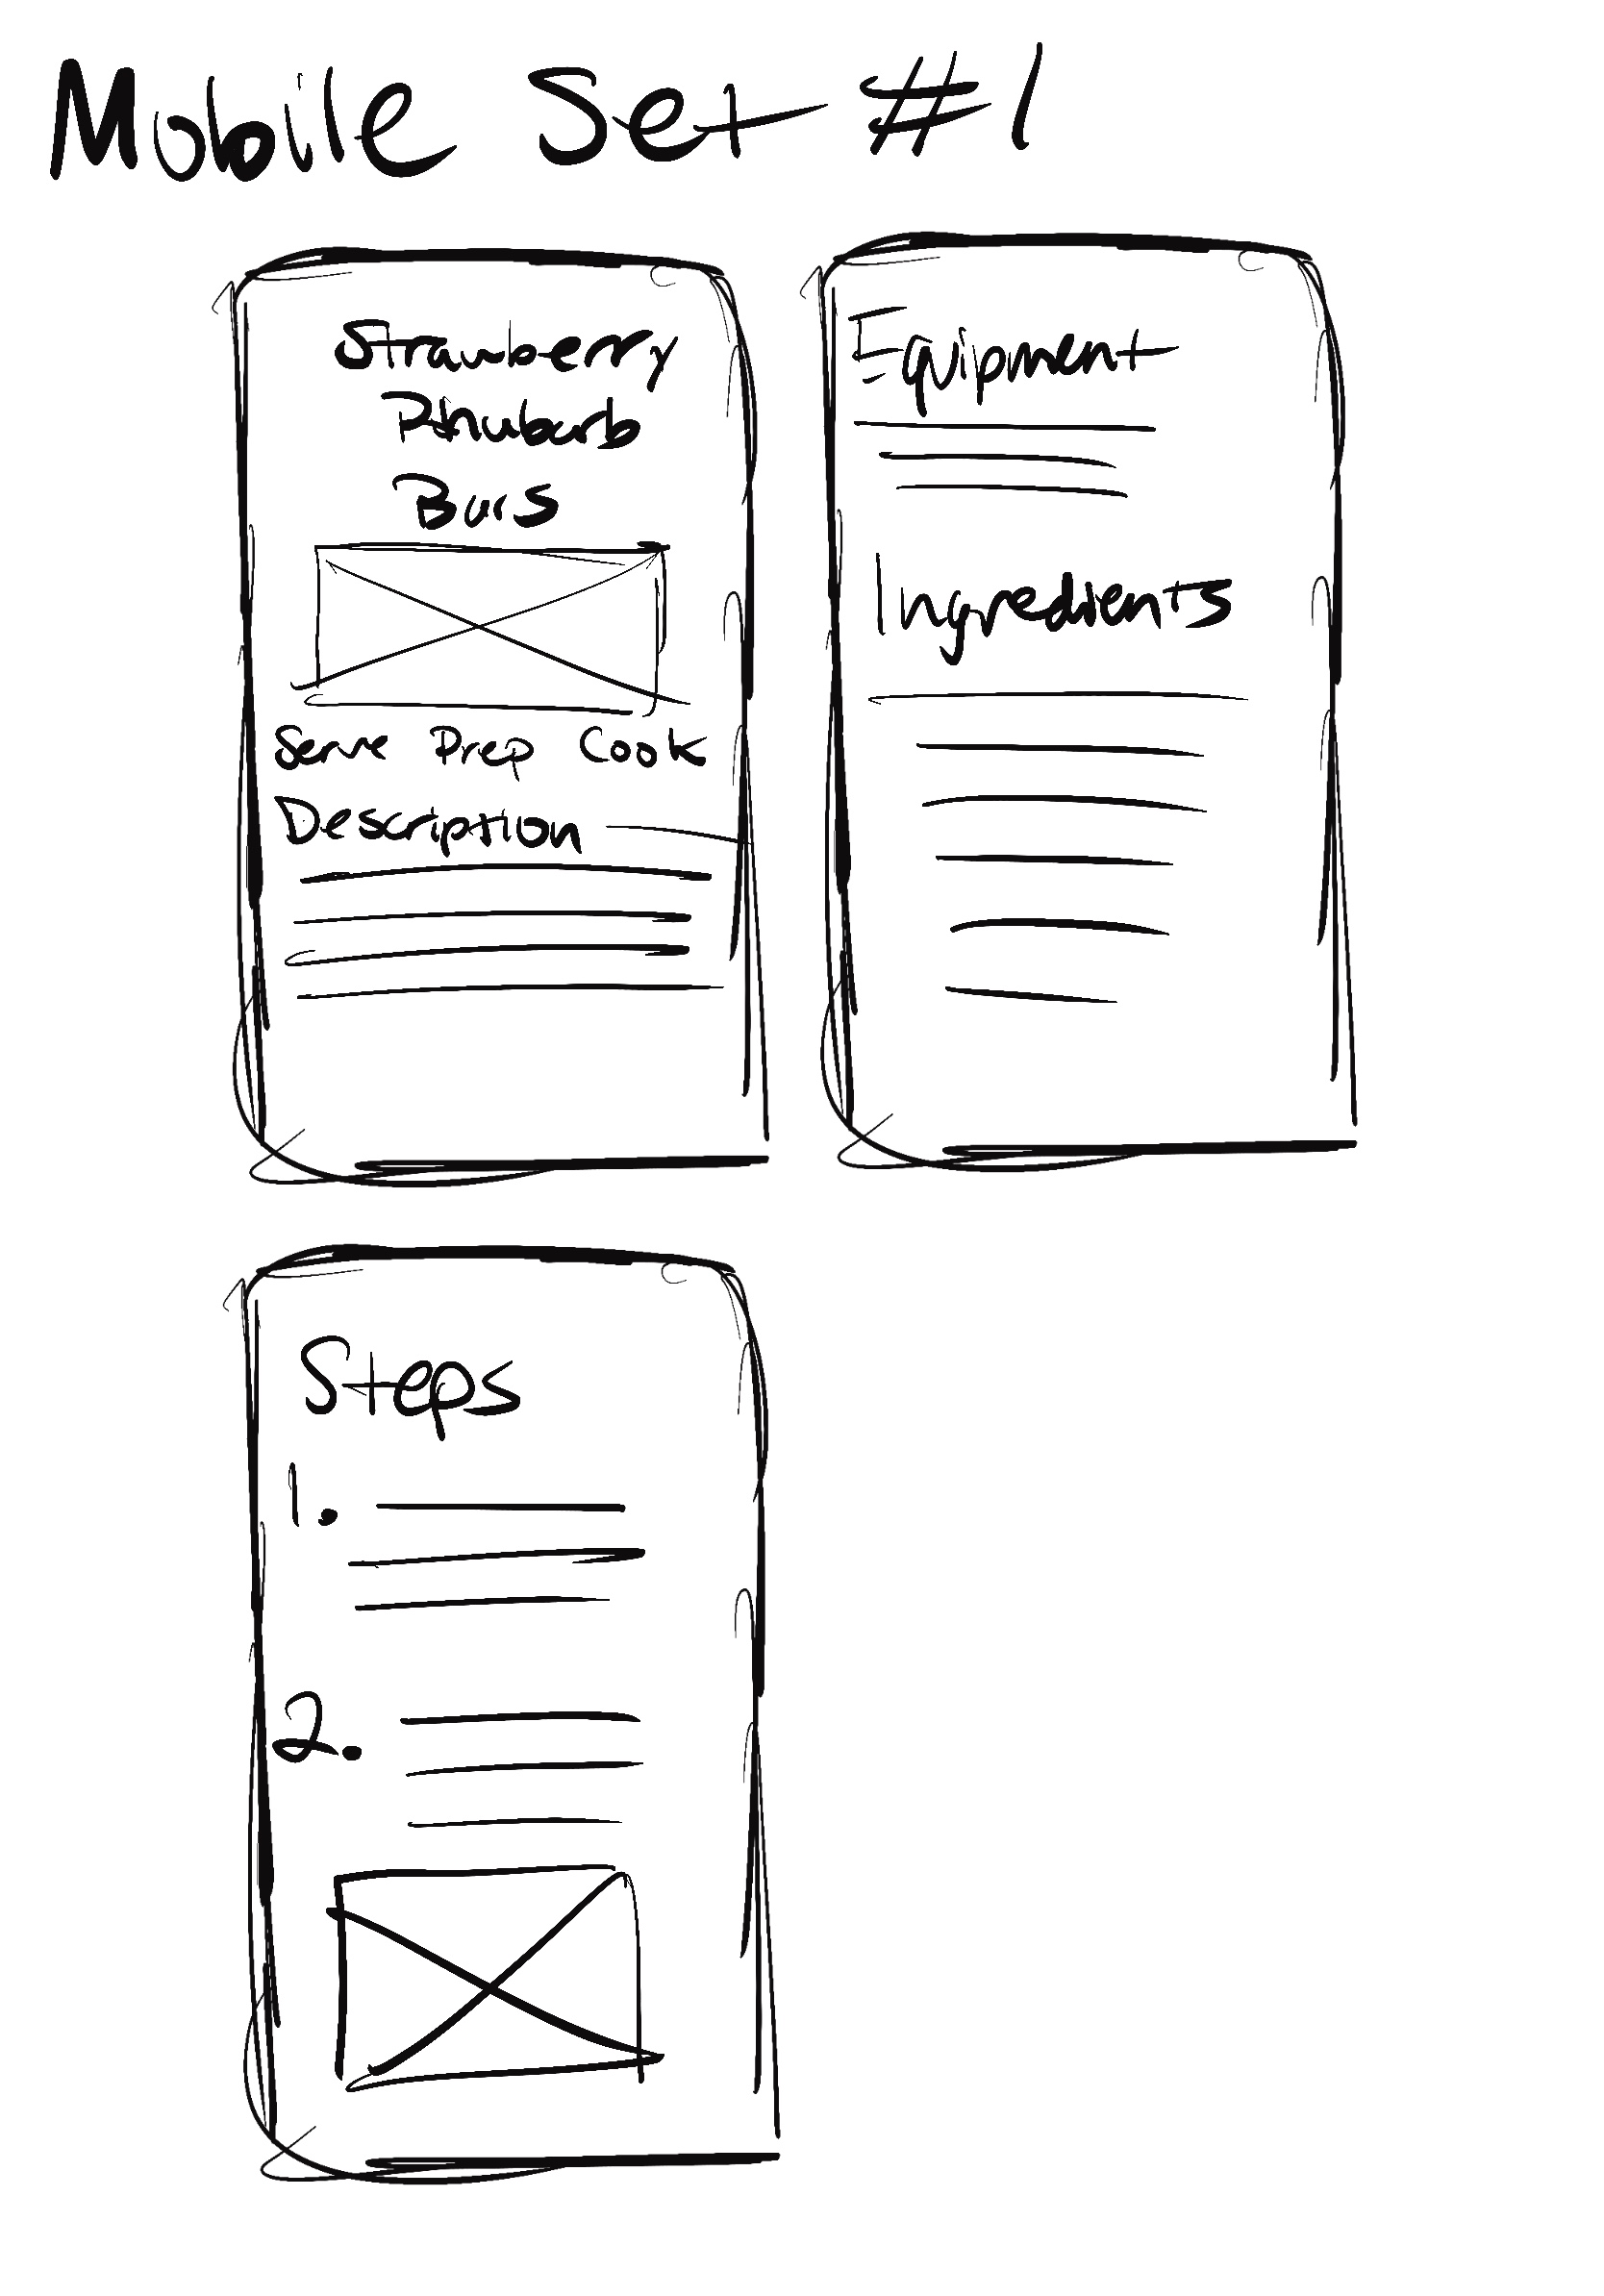 Mobile Set #1
Strawberry
Rhubarb
Bars
Serve Prep Cook
Description
Equipment
Ingredients
Steps
1.
2.